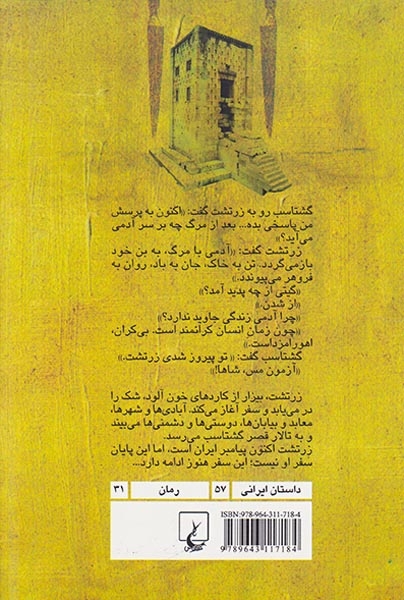 گشتاسب رو به زرتشت گفت: «اکنون به پرسش
من پاسخی بده... بعد از مرگ چه بر سر آدمی
می‌آید؟»
زرتشت گفت: «آدمی با مرگ، به بن خود
بازمی‌گردد. تن به خاک، جان به باد، روان به
فروهر می‌پیوندد.»
«گیتی از چه پدید آمد؟»
«از شدن.»
«چرا آدمی زندگی جاوید ندارد؟»
«چون زمان انسان کرانمند است. بی‌کران،
اهورامزداست.»
گشتاسب گفت: «تو پیروز شدی زرتشت.»
«آزمون مس، شاها!»
زرتشت، بیزار از کاردهای خون آلود، شک را
در می‌یابد و سفر آغاز می‌کند. آبادی‌ها و شهرها،
معابد و بیابان‌ها، دوستی‌ها و دشمنی‌ها می‌بیند
و به تالار قصر گشتاسب می‌رسد.
زرتشت اکنون پیامبر ایران است، اما این پایان
سفر او نیست؛ این سفر هنوز ادامه دارد...
داستان ایرانی ۵۷ رمان ۳۱
ISBN: 978-964-311-718-4
9789643117184